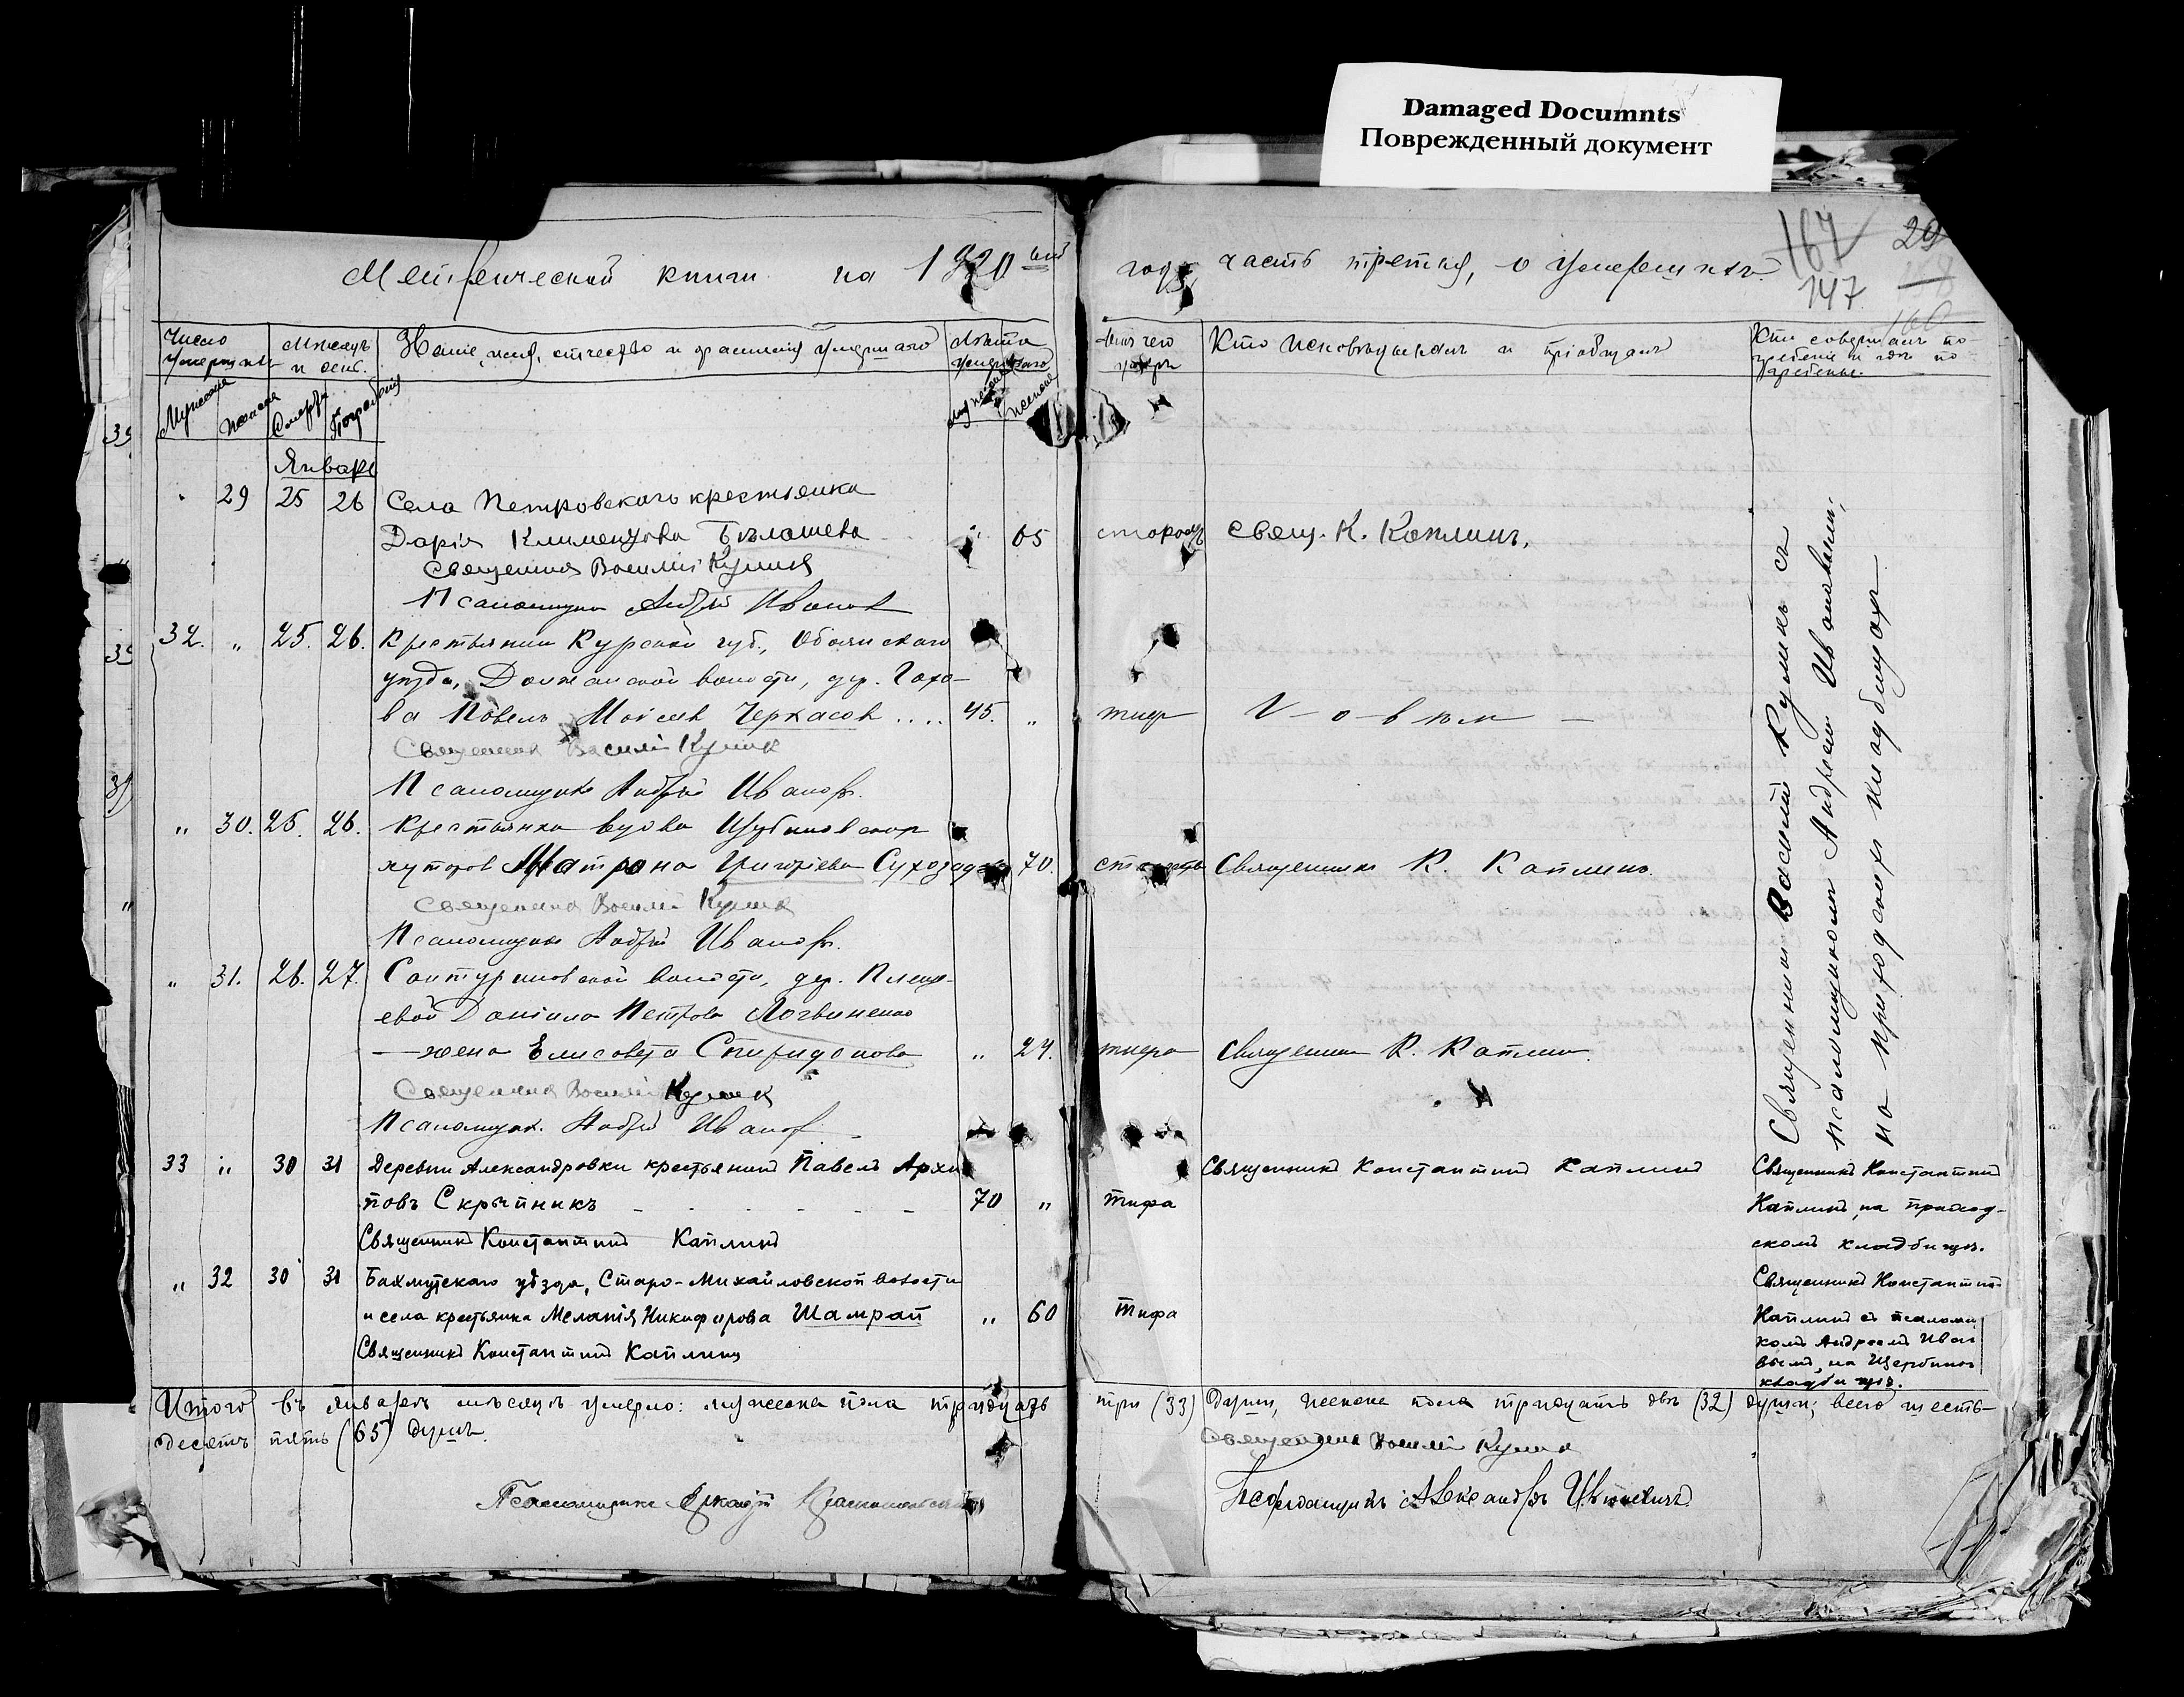 Damaged Documnts
Поврежденный документ
167 29
147
160
Метрической книги на 1920 ый
годъ, часть третья, о умершихъ.
Число умершихъ
Мѣсяцъ и день.
Званіе, имя, отчество и фамилія умершаго
Лѣта умершаго
Отъ чего умеръ
Кто исповѣдывалъ и пріобщалъ
Кто совершалъ погребеніе и гдѣ погребены.
Мужеска
Женска
Смерти
Погребенія
мужеска
женска
Январь
29 25 26 Села Петровскаго крестьянка
Дарія Климентова Бѣлашева 65 старость Свящ. К. Каплинъ.
Священникъ Василій Куликъ
Псаломщикъ Андрей Ивановъ
32. " 25. 26. Крестьянинъ Курской губ., Обоянскаго
уѣзда, Должанской волости, дер.
Павелъ Моісеевъ Черкасовъ .... 45. " тифъ
Священникъ Василій Куликъ
Псаломщикъ Андрей Ивановъ.
" 30. 25. 26. Крестьянка вдова
хуторовъ Матрона Григоріева 70. старость Священникъ К. Каплинъ.
Священникъ Василій Куликъ
Псаломщикъ Андрей Ивановъ.
" 31. 26. 27. Сантуриновской волости, дер. Плещ-
евой Даніила Петрова Логвиненко
жена Елисавета Спиридонова " 24. тифа Священникъ К. Каплинъ.
Священникъ Василій Куликъ
Псаломщик. Андрей Ивановъ.
Священникъ Василій Куликъ съ
псаломщикомъ Андреемъ Ивановымъ,
на приходскомъ кладбищѣ
33 " 30 31 Деревни Александровки крестьянинъ Павелъ Архи
повъ Скрыпникъ 70 " Тифа
Священникъ Константинъ Каплинъ
Священникъ Константинъ Каплинъ
Священникъ Константинъ
Каплинъ, на приход-
скомъ кладбищѣ.
" 32 30 31 Бахмутскаго уѣзда, Старо-Михайловской волости
и села крестьянка Меланія Никифорова Шамрай " 60 Тифа
Священникъ Константинъ Каплинъ
Священникъ Константинъ
Каплинъ съ псаломщи
комъ Андреемъ Ивано
вымъ, на
кладбищѣ.
Итого въ январѣ мѣсяцѣ умерло: мужеска пола тридцать три (33) души, женска пола тридцать двѣ (32) души; всего шесть-
десятъ пять (65) душъ.
Священникъ Василій Куликъ
Псаломщикъ
Александръ